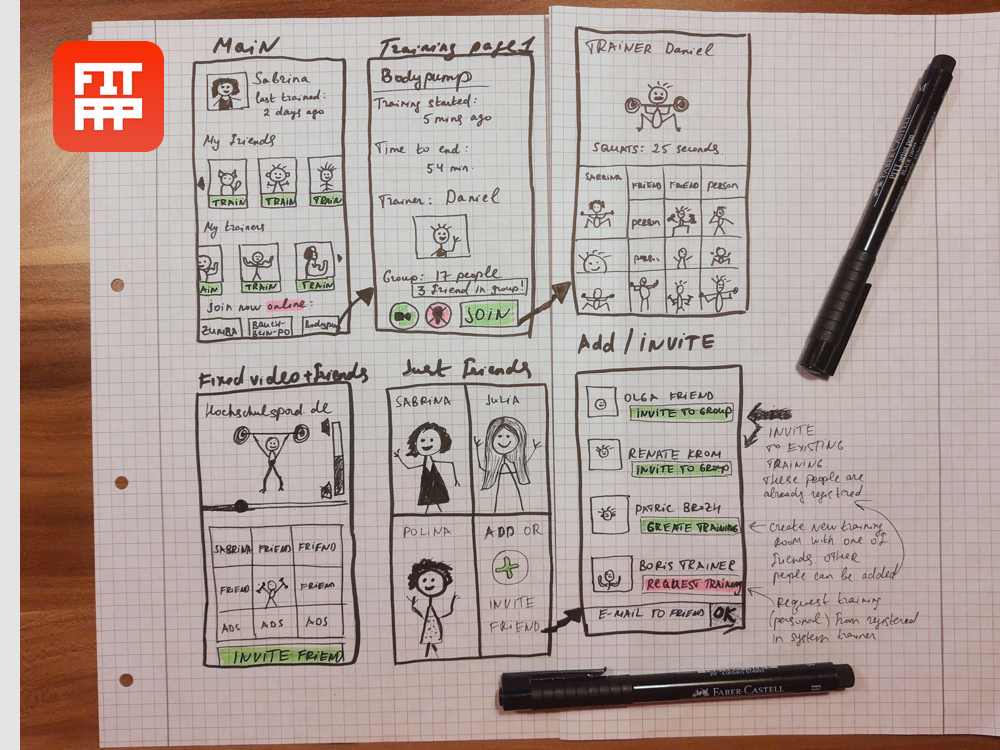 FIT
APP
Main
Sabrina
last trained:
2 days ago
My friends
TRAIN TRAIN TRAIN
My trainers
AIN TRAIN TRAIN
Join now online:
ZUMBA
Bodypump
Training page 1
Bodypump
Training started:
5 mins ago
Time to end:
54 min.
Trainer: Daniel
Group: 17 people
3 friend in group!
JOIN
TRAINER Daniel
SQUATS: 25 seconds
SABRINA FRIEND FRIEND person
person
pers..
Fixed video + friends
Hochschulsport.de
SABRINA FRIEND FRIEND
FRIEND FRIEND
ADS ADS ADS
INVITE FRIEND
Just friends
SABRINA JULIA
POLINA ADD OR
INVITE
FRIEND
Add / INVITE
OLGA FRIEND
INVITE TO GROUP
RENATE KROM
INVITE TO GROUP
PATRIC BROZH
CREATE TRAINING
BORIS TRAINER
REQUEST TRAINING
E-MAIL TO FRIEND OK
INVITE
TO EXISTING
TRAINING.
These people are
already registered
Create new training
room with one of
friends other
people can be added
Request training
(personal) from registered
in system trainer
FABER-CASTELL
FABER-CASTELL
B